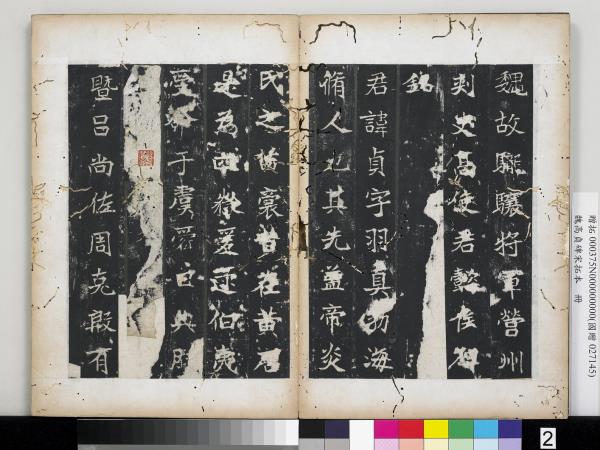 魏故龍驤將軍營州
刾史高使君懿侯碑
銘
君諱貞字羽真勃海
脩人也其先蓋帝炎
氏之苗裔昔在黃唐
是為四嶽爰逮伯夷
受命于虞爰宅典刑
暨呂尚佐周克殷有
贈拓 000375N000000000(國贈 027145)
魏高貞碑宋拓本 冊
2